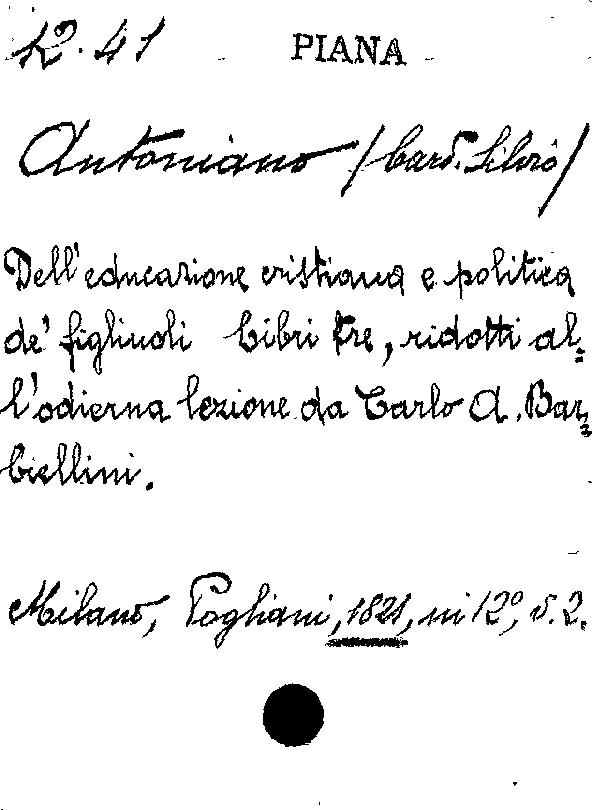 12. 41 PIANA
Antoniano / Card. Silvio /
Dell'educazione cristiana e politica
de' figliuoli Libri tre, ridotti al=
l'odierna lezione da Carlo A. Bar=
biellini.
Milano, Pogliani, 1821, in 12º, v. 2.